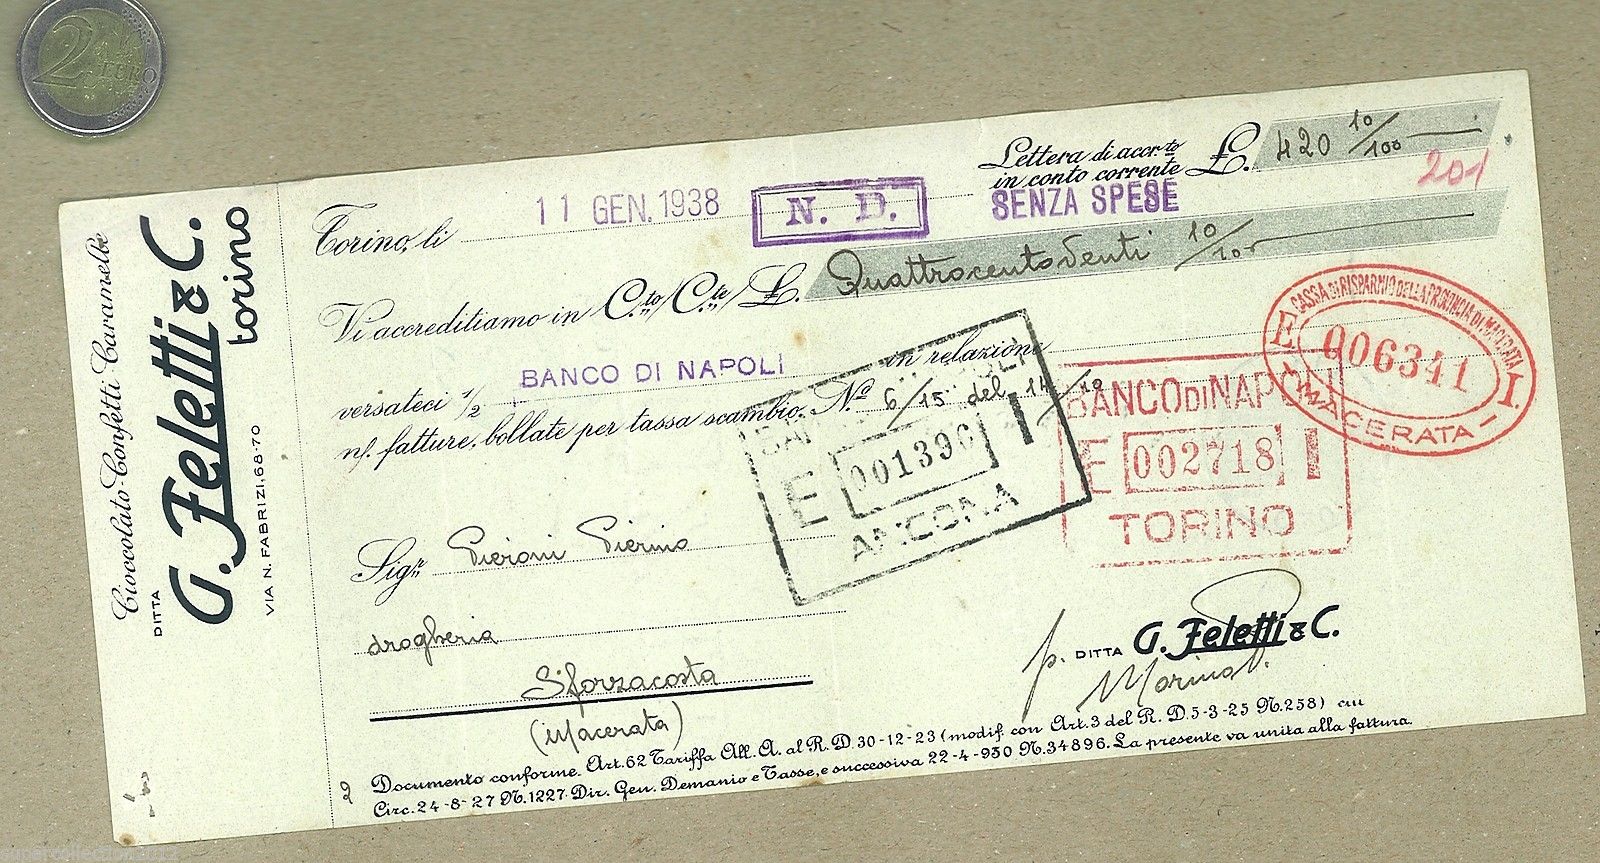 2 EURO
Cioccolato-Confetti Caramelle
DITTA
G. Feletti & C.
torino
VIA N. FABRIZI, 68-70
Lettera di accr.to
in conto corrente £. 420 10/100
SENZA SPESE
201
Torino, li 11 GEN. 1938
N. D.
Vi accreditiamo in C.to/C.te/£. Quattrocentoventi 10/100
versateci ½ BANCO DI NAPOLI in relazione
nf. fatture, bollate per tassa scambio. N.o 6/15 del 14/10
E 001396 I
ANCONA
BANCO DI NAPOLI
E 002718 I
TORINO
CASSA DI RISPARMIO DELLA PROVINCIA DI MACERATA
E 006341 I.
MACERATA
Sigr. Pieroni Pierino
drogheria
Sforzacosta
(Macerata)
p. DITTA G. Feletti & C.
2 Documento conforme. Art. 62 Tariffa All. A. al R. D. 30-12-23 (modif. con Art. 3 del R. D. 5-3-25 N. 258) cui
Circ. 24-8-27 N. 1227 Dir. Gen. Demanio e Tasse, e successiva 22-4-930 N. 34896. La presente va unita alla fattura.
supercollection2012